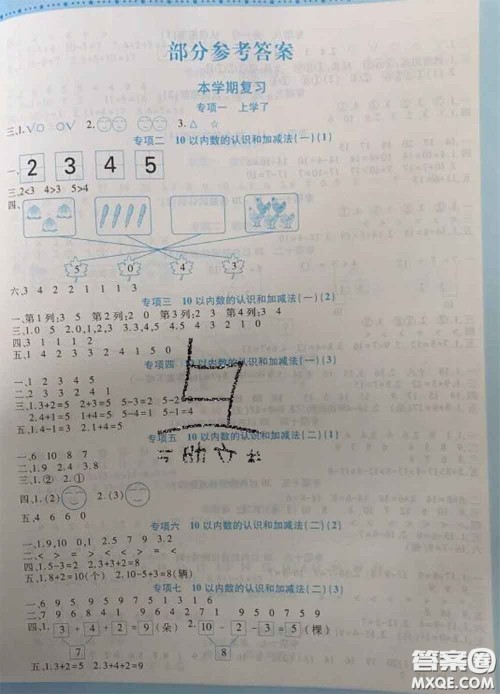 部分参考答案
本学期复习
专项一 上学了
三、1.√○ ○√ 2. 3.△ ☆
专项二 10以内数的认识和加减法(一)(1)
一、2 3 4 5
三、2<3 4>3 5>4
四、
5 0 4 3
六、3 4 2 2 1 1 1 3
专项三 10以内数的认识和加减法(一)(2)
一、第1列:3 5 第2列:2 0 第3列:2 3 第4列:3 4
三、1.0 5 2.0,1,2,3 3.3,4,5 4.5 4 3 2 1 0
四、3 1 1 1 2
五、1 4 2 1 3 3 2 4 1 5 0
专项四 10以内数的认识和加减法(一)(3)
一、1 2 3 4 5
二、2 3 3 2 4 1
三、1.3+2=5 2+3=5 5-3=2 5-2=
2.4+1=5 1+4=5 5-4=1 5-1=4
五、1.4-1=3 2.1+4=5
专项五 10以内数的认识和加减法(二)(1)
一、6 10 8 7
二、1.9 2.4 3.8
三、1.② 2.①
四、1.(2) 2.(3)
五、4 6 6 0
专项六 10以内数的认识和加减法(二)(2)
一、1.9,10 0,1 2.5 7 9 3.2
二、< > = > < > > < > = <
四、1.5-3=2 2.6+3=9
五、1.8+2=10(个) 2.10-5+3=8(辆)
专项七 10以内数的认识和加减法(二)(3)
一、6 9 5 9 5 9 7 5 1 3 1 6
二、7 9 6 8 4 9 6 4 9 10 2 9
四、1. 3+4+2=9(朵) 2. 10-2-3=5(棵)
7 8
五、1.3+2=5 2.3+4+2=9
答案圈
MXQE.COM